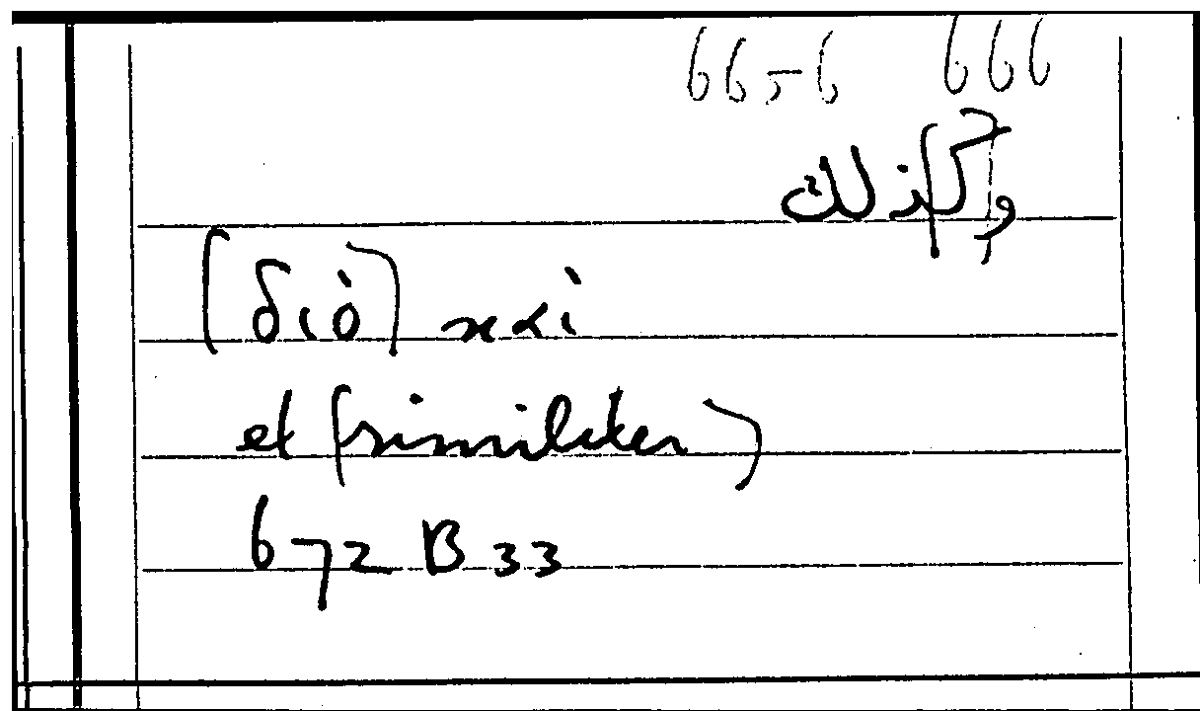 6656 666
و[كذ]لك
(διὸ) καὶ
et (similiter)
672 B 33